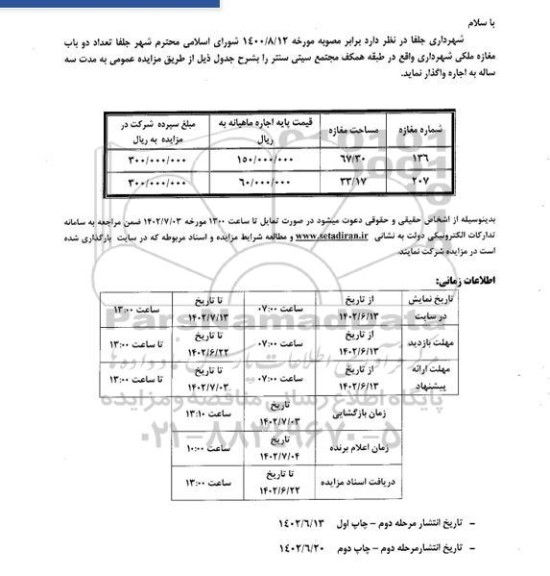 با سلام
شهرداری جلفا در نظر دارد برابر مصوبه مورخه ۱٤۰۰/۸/۱۲ شورای اسلامی محترم شهر جلفا تعداد دو باب
مغازه ملکی شهرداری واقع در طبقه همکف مجتمع سیتی سنتر را بشرح جدول ذیل از طریق مزایده عمومی به مدت سه
ساله به اجاره واگذار نماید.
شماره مغازه مساحت مغازه قیمت پایه اجاره ماهیانه به ریال مبلغ سپرده شرکت در مزایده به ریال
۱۳٦ ٦۷/۳۰ ۱۵۰/۰۰۰/۰۰۰ ۳۰۰/۰۰۰/۰۰۰
۲۰۷ ۳۳/۱۷ ٦۰/۰۰۰/۰۰۰ ۳۰۰/۰۰۰/۰۰۰
بدینوسیله از اشخاص حقیقی و حقوقی دعوت میشود در صورت تمایل تا ساعت ۱۳۰۰ مورخه ۱۴۰۲/۷/۰۳ ضمن مراجعه به سامانه
تدارکات الکترونیکی دولت به نشانی www.setadiran.ir و مطالعه شرایط مزایده و اسناد مربوطه که در سایت بارگذاری شده
است در مزایده شرکت نمایند.
اطلاعات زمانی:
تاریخ نمایش از تاریخ ساعت ۰۷:۰۰ تا تاریخ ساعت ۱۳:۰۰
در سایت ۱۴۰۲/۶/۱۳ ۱۴۰۲/۷/۱۳
مهلت بازدید از تاریخ ساعت ۰۷:۰۰ تا تاریخ تا ساعت ۱۳:۰۰
۱۴۰۲/۶/۱۳ ۱۴۰۲/۶/۲۲
مهلت ارائه از تاریخ ساعت ۰۷:۰۰ تا تاریخ تا ساعت ۱۳:۰۰
پیشنهاد ۱۴۰۲/۶/۱۳ ۱۴۰۲/۷/۰۳
زمان بازگشایی تاریخ ساعت ۱۳:۱۰
۱۴۰۲/۷/۰۳
زمان اعلام برنده تاریخ ساعت ۱۰:۰۰
۱۴۰۲/۷/۰۴
دریافت اسناد مزایده تا تاریخ ساعت ۱۳:۰۰
۱۴۰۲/۶/۲۲
پایگاه اطلاع رسانی مناقصه و مزایده
۰۲۱-۸۸۳۴۹۶۷۰-۵
- تاریخ انتشار مرحله دوم – چاپ اول ۱٤۰۲/٦/۱۳
- تاریخ انتشارمرحله دوم – چاپ دوم ۱٤۰۲/٦/۲۰